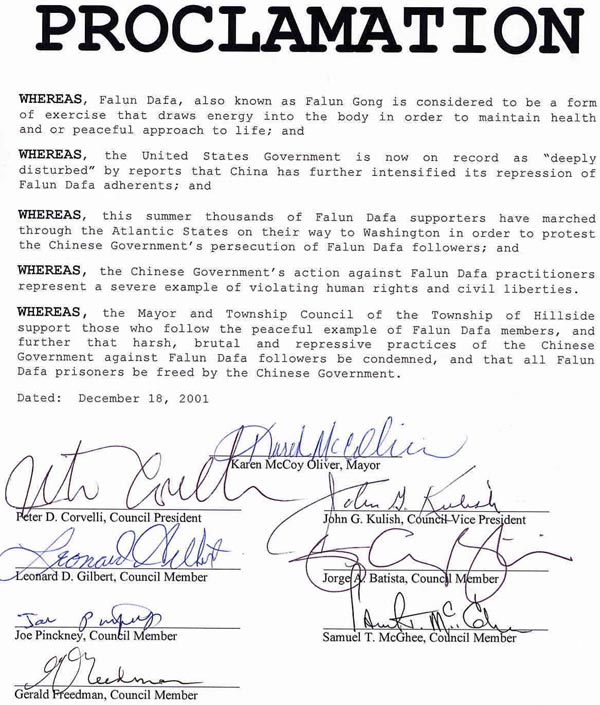 PROCLAMATION
WHEREAS, Falun Dafa, also known as Falun Gong is considered to be a form
of exercise that draws energy into the body in order to maintain health
and or peaceful approach to life; and
WHEREAS, the United States Government is now on record as “deeply
disturbed” by reports that China has further intensified its repression of
Falun Dafa adherents; and
WHEREAS, this summer thousands of Falun Dafa supporters have marched
through the Atlantic States on their way to Washington in order to protest
the Chinese Government’s persecution of Falun Dafa followers; and
WHEREAS, the Chinese Government’s action against Falun Dafa practitioners
represent a severe example of violating human rights and civil liberties.
WHEREAS, the Mayor and Township Council of the Township of Hillside
support those who follow the peaceful example of Falun Dafa members, and
further that harsh, brutal and repressive practices of the Chinese
Government against Falun Dafa followers be condemned, and that all Falun
Dafa prisoners be freed by the Chinese Government.
Dated: December 18, 2001
Karen McCoy Oliver, Mayor
Peter D. Corvelli, Council President
John G. Kulish
John G. Kulish, Council Vice President
Leonard D. Gilbert
Leonard D. Gilbert, Council Member
Jorge A. Batista, Council Member
Joe Pinckney, Council Member
Samuel T. McGhee, Council Member
Gerald Freedman, Council Member